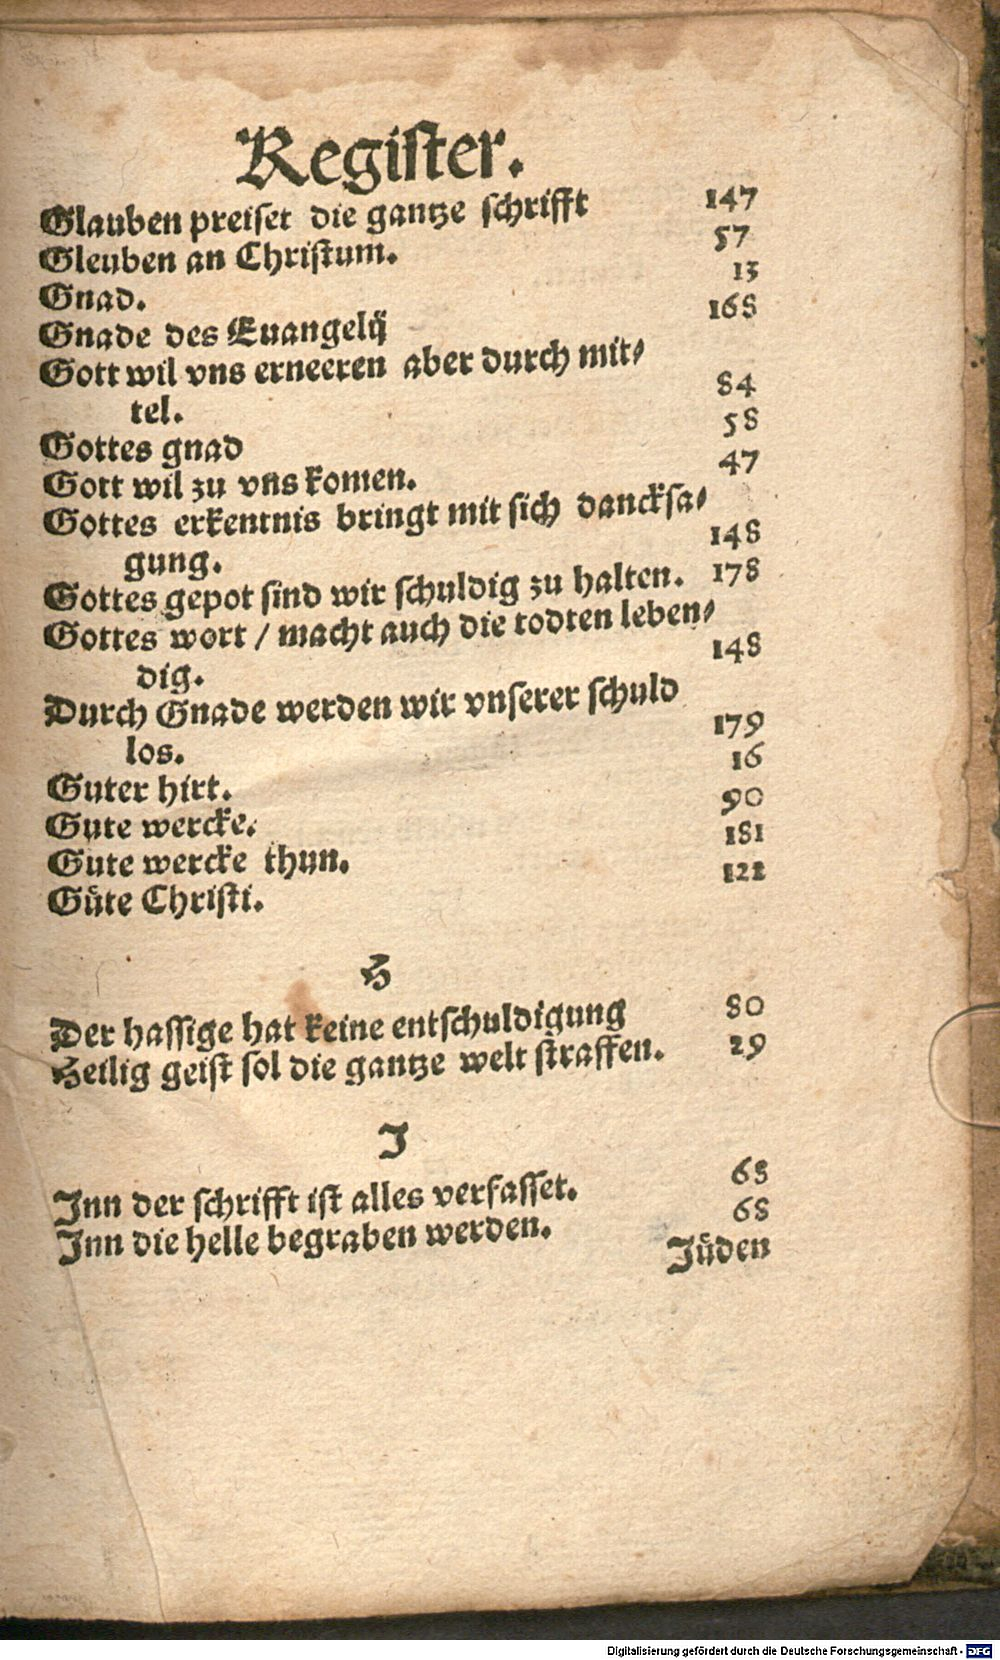 Register.
Glauben preiset die gantze schrifft 147
Gleuben an Christum. 57
Gnad. 13
Gnade des Euangelij 168
Gott wil vns erneeren aber durch mit⸗
tel. 84
Gottes gnad 58
Gott wil zu vns komen. 47
Gottes erkentnis bringt mit sich dancksa⸗
gung. 148
Gottes gepot sind wir schuldig zu halten. 178
Gottes wort / macht auch die todten leben⸗
dig. 148
Durch Gnade werden wir vnserer schuld
los. 179
Guter hirt. 16
Gute wercke. 90
Gute wercke thun. 181
Guͤte Christi. 121
H
Der hassige hat keine entschuldigung 80
Heilig geist sol die gantze welt straffen. 29
J
Jnn der schrifft ist alles verfasset. 63
Jnn die helle begraben werden. 68
Juͤden
Digitalisierung gefördert durch die Deutsche Forschungsgemeinschaft - DFG